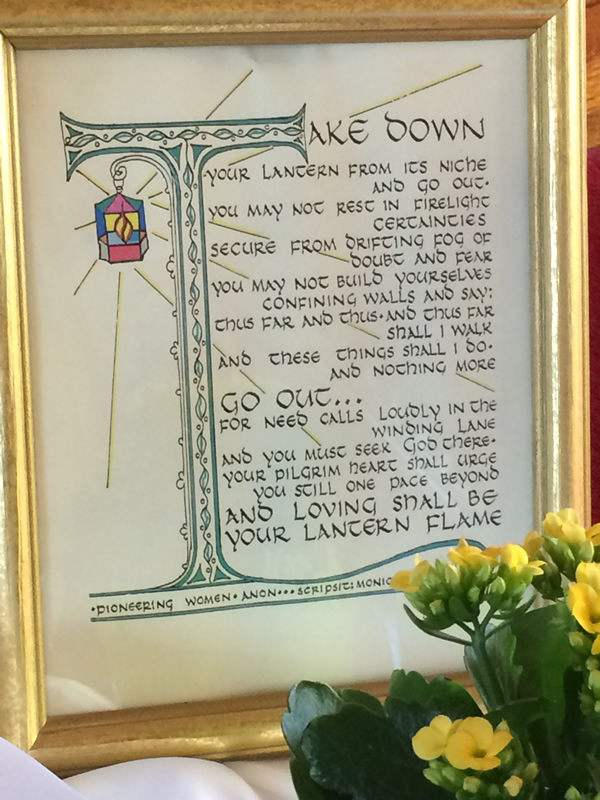 TAKE DOWN
YOUR LANTERN FROM ITS NICHE
AND GO OUT.
YOU MAY NOT REST IN FIRELIGHT
CERTAINTIES
SECURE FROM DRIFTING FOG OF
DOUBT AND FEAR
YOU MAY NOT BUILD YOURSELVES
CONFINING WALLS AND SAY:
THUS FAR AND THUS·AND THUS FAR
SHALL I WALK
AND THESE THINGS SHALL I DO·
AND NOTHING MORE
GO OUT...
FOR NEED CALLS LOUDLY IN THE
WINDING LANE
AND YOU MUST SEEK GOD THERE·
YOUR PILGRIM HEART SHALL URGE
YOU STILL ONE PACE BEYOND
AND LOVING SHALL BE
YOUR LANTERN FLAME
·PIONEERING WOMEN· ANON···SCRIPSIT: MONIC